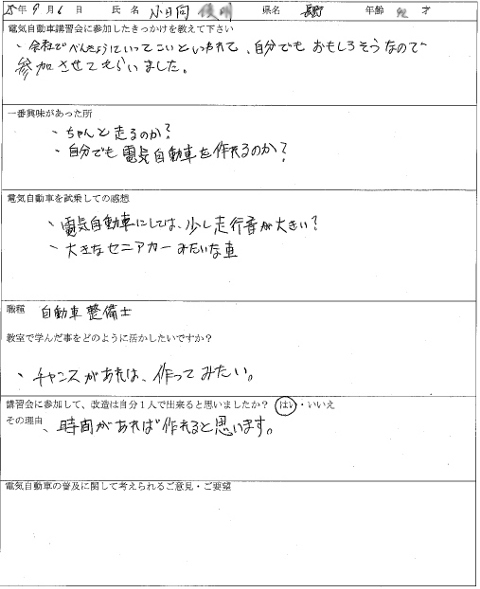 年9月6日 氏名 小日向 県名 長野 年齢 才
電気自動車講習会に参加したきっかけを教えて下さい
・会社でべんきょうにいってこいといわれて、自分でもおもしろそうなので
参加させてもらいました。
一番興味があった所
・ちゃんと走るのか?
・自分でも電気自動車を作れるのか?
電気自動車を試乗しての感想
・電気自動車にしては、少し走行音が大きい?
・大きなセニアカーみたいな車
職種 自動車整備士
教室で学んだ事をどのように活かしたいですか?
・チャンスがあれば、作ってみたい。
講習会に参加して、改造は自分1人で出来ると思いましたか? はい・いいえ
その理由
・時間があれば作れると思います。
電気自動車の普及に関して考えられるご意見・ご要望